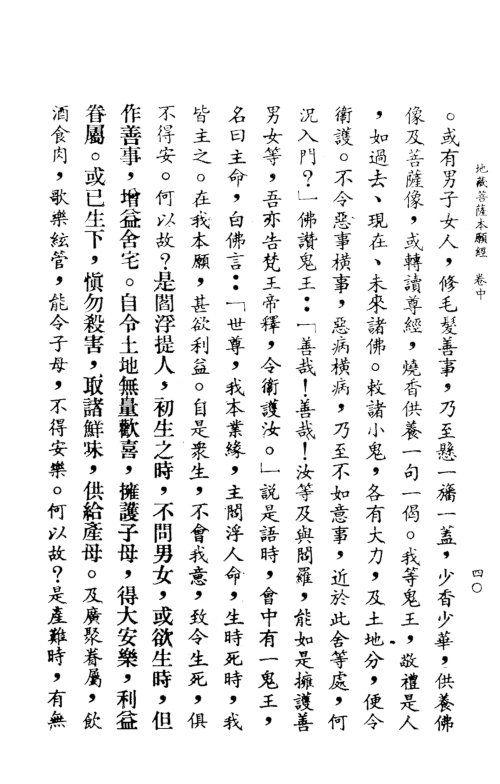 地藏菩薩本願經 卷中
四〇
。或有男子女人，修毛髮善事，乃至懸一旛一蓋，少香少華，供養佛
像及菩薩像，或轉讀尊經，燒香供養一句一偈。我等鬼王，敬禮是人
，如過去、現在、未來諸佛。敕諸小鬼，各有大力，及土地分，便令
衛護。不令惡事橫事，惡病橫病，乃至不如意事，近於此舍等處，何
況入門？」佛讚鬼王：「善哉！善哉！汝等及與閻羅，能如是擁護善
男女等，吾亦告梵王帝釋，令衛護汝。」說是語時，會中有一鬼王，
名曰主命，白佛言：「世尊，我本業緣，主閻浮人命，生時死時，我
皆主之。在我本願，甚欲利益。自是眾生，不會我意，致令生死，俱
不得安。何以故？是閻浮提人，初生之時，不問男女，或欲生時，但
作善事，增益舍宅。自令土地無量歡喜，擁護子母，得大安樂，利益
眷屬。或已生下，慎勿殺害，取諸鮮味，供給產母。及廣聚眷屬，飲
酒食肉，歌樂絃管，能令子母，不得安樂。何以故？是產難時，有無